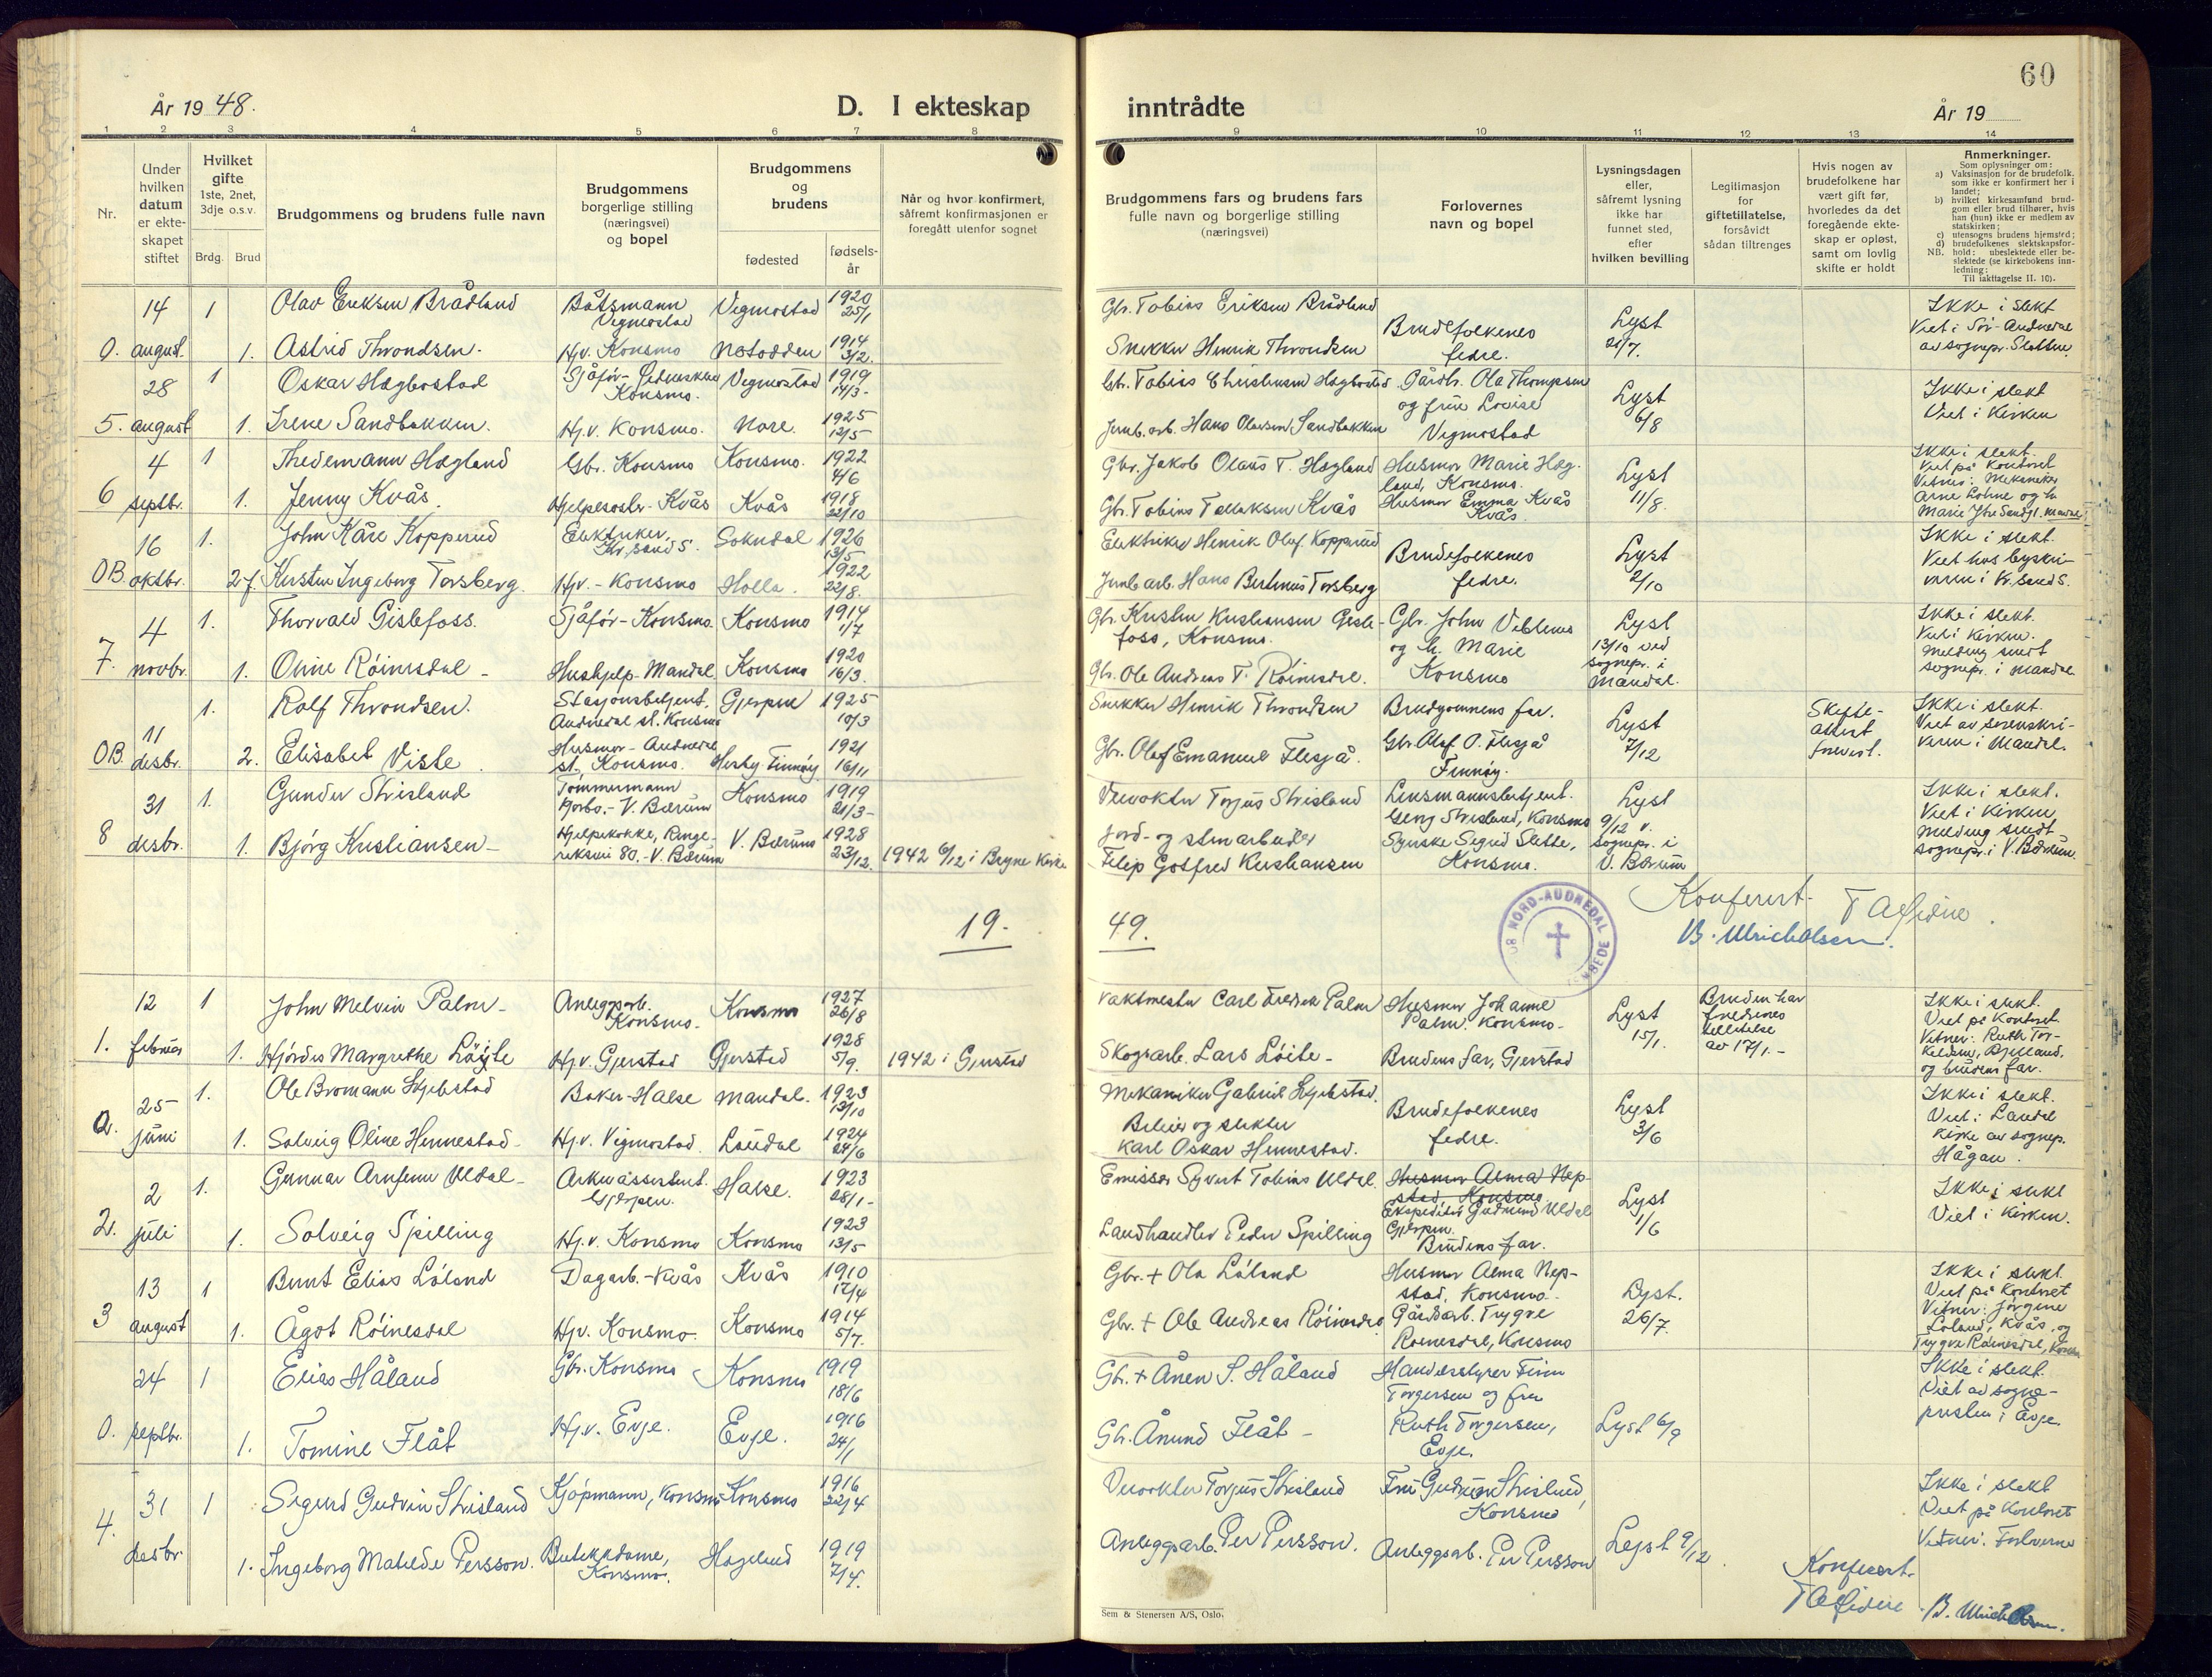 60
År 19 48.
D. I ekteskap
inntrådte
År 19
1 2 3 4 5 6 7 8
9 10 11 12 13 14
Nr.
Under hvilken datum er ekte-skapet stiftet
Hvilket gifte
1ste, 2net, 3dje o.s.v.
Brdg. Brud
Brudgommens og brudens fulle navn
Brudgommens borgerlige stilling (næringsvei) og bopel
Brudgommens og brudens
fødested
fødsels-år
Når og hvor konfirmert, såfremt konfirmasjonen er foregått utenfor sognet
Brudgommens fars og brudens fars fulle navn og borgerlige stilling (næringsvei)
Forlovernes navn og bopel
Lysningsdagen eller, såfremt lysning ikke har funnet sted, efter hvilken bevilling
Legitimasjon for giftetillatelse, forsåvidt sådan tiltrenges
Hvis nogen av brudefolkene har vært gift før, hvorledes da det foregående ekte-skap er opløst, samt om lovlig skifte er holdt
Anmerkninger.
Som oplysninger om:
a) Vaksinasjon for de brudefolk. som ikke er konfirmert her i landet;
b) hvilket kirkesamfund brud-gom eller brud tilhører, hvis han (hun) ikke er medlem av statskirken;
c) utensogns brudens hjemsted;
d) brudefolkenes slektskapsfor-hold: ubeslektede eller be-slektede (se kirkebokens inn-ledning:
NB.
Til iakttagelse II. 10).
14 1 Olav Eriksen Brådland Båtsmann Vegmostad Vegmostad 1920 25/1
Gbr. Tobias Eriksen Brådland Brudefolkenes fedre. Lyst 21/7. Ikke i slekt
Viet i Sør-Audnedal av sognepr. Slottene
0. august. 1. Astrid Throndsen. Hjv. Konsmo Notodden 1914 3/2.
Snekker Henrik Throndsen
28 1 Oskar Hægbostad Sjåfør- Konsmo. Vegmostad 1919 14/3-
Gbr. Tobias Christensen Hægbostad Gårdbr. Ola Thompsen og frue Lovise Vegmostad Lyst 6/8 Ikke i slekt
Viet i Kirken
5. august 1. Irene Sandbakken. Hj.v. Konsmo. Nore. 1925 12/5
Jernb. arb. Hans Olavsen Sandbakken
4 1 Thedemann Høgland Gbr. Konsmo Konsmo. 1922 4/6
Gbr. Jakob Olaus T. Høgland Husmor Marie Høg-land, Konsmo. Lyst 11/8. Ikke i slekt.
Viet på Kontoret
Vitner: Mekaniker
Arne Løhne og h.
6 septbr. 1. Jenny Kvås. Hjelpesøster- Kvås Kvås 1918 22/10
Gbr. Tobias Tallaksen Kvås Husmor Emma Kvås Kvås.
16 1. John Kåre Kopperud Elektriker, Kr.sand S. Sokndal 1926 13/5
Elektriker Henrik Olaf Kopperud Brudefolkenes fedre. Lyst 2/10 Ikke i slekt.
Viet hos byskri-veren i Kr. sand S.
OB. oktbr. 2 f. Kirsten Ingeborg Torsberg. Hjv. - Konsmo Holla. 1922 22/8.
Jernb arb. Hans Bertinius Torsberg
4 1. Thorvald Gislefoss. Sjåfør- Konsmo. Konsmo 1914 1/7
Gbr. Kristen Kristiansen Gisle-foss, Konsmo. Gbr. John Vibless og h. Marie Konsmo Lyst 13/10 ved sognepr. i Mandal. Ikke i slekt.
Viet i Kirken.
Melding sendt sognepr. i Mandal.
7. novbr. 1. Oline Røinesdal - Hushjelp- Mandal Konsmo 1920 16/3.
Gbr. Ole Andreas T. Røinesdal.
11 1. Rolf Throndsen. Stasjonsbetjent, Audnedal st. Konsmo Gjerpen 1925 10/3
Snekker Henrik Throndsen Brudgommens far. Lyst 7/12 Skifte-attest frevist. Ikke i slekt.
Viet av sorenskri-veren i Mandal.
OB. desbr. 2. Elisabet Viste Husmor - Audnedal st, Konsmo. Hesby Finnøy 1921 16/11
Gbr. Olaf Emanuel Flesjå. Gbr. Olaf O. Flesjå Finnøy.
31 1. Gunder Strisland Tømmermann V. Bærum Konsmo 1919 21/3-
Veivokter Torjus Strisland Lensmannsbetjent. Georg Strisland, Konsmo Lyst 9/12 v. sognepr. i V. Bærum Ikke i slekt.
Viet i Kirken
Melding sendt sognepr. i V. Bærum.
8 desbr. 1. Bjørg Kristiansen - Hjelpekokke, Ringe-riksvei 80. - V. Bærum V. Bærum 1928 23/12. 1942 6/12 i Bryne Kirke
Jord- og stenarbeider Filip Gotfred Kristiansen Syerske Sigrid Slette, Konsmo.
NORD-AUDNEDAL
Konferert.
B. Ulricholsen.
19. 49.
12 1 John Melvin Palm - Anleggsarb. Konsmo. Konsmo 1927 26/8
Vaktmester Carl Fredrik Palm Husmor Johanne Palm. Konsmo. Lyst 15/1. Bruden har fredenes tillatelse av 17/1. - Ikke i slekt.
Viet på Kontoret
Vitner: Ruth Tor-kildsen, Bjelland, og brudens far.
1. februar 1. Hjørdis Margrethe Løite Hj.v. Gjerstad Gjerstad 1928 5/9. 1942 i Gjerstad
Skogsarb. Lars Løite - Brudens far, Gjerstad
25 1. Ole Bromann Skjebstad Baker- Halse Mandal. 1923 13/10
Mekaniker Gabriel Skjebstad. Brudefolkenes fedre. Lyst 3/6 Ikke i slekt.
Viet i Laudal Kirke av sognep. Hågan.
0. juni 1. Solveig Oline Hennestad - Hj.v. Vigmostad. Laudal 1924 24/6
Bileier og slakter Karl Oskar Hennestad.
2 1. Gunnar Arnfinn Uldal - Arkivassistent. Gjerpen. Halse. 1923 28/1 -
Emissær Syvert Tobias Uldal. Husmor Alma Nep-stad, Konsmo Ekspeditør Gudrund Uldal Gjerpen. Lyst 1/6 Ikke i slekt
Viet i Kirken.
2. juli 1. Solveig Spilling Hj.v. Konsmo Konsmo 1923 13/5
Landhandler Peder Spilling Brudens far.
13 1 Bernt Elias Løland Dagarb. - Kvås Kvås 1910 17/4
Gbr. + Ola Løland Husmor Alma Nep-stad, Konsmo. Lyst. 26/7. Ikke i slekt.
Viet på Kontoret
Vitner: Jørgine Løland, Kvås, og Trygve Røinesdal, Konsmo
3 august 1. Ågot Røinesdal Hjv. Konsmo. Konsmo 1914 5/7.
Gbr. + Ole Andreas Røinesdal Gårdsarb. Trygve Roinesdal, Konsmo
24 1 Elias Håland Gbr. Konsmo Konsmo 1919 18/6
Gbr. + Ånen S. Håland Handelsstyrer Finn Torgersen og fru Ruth Torgersen, Evje. Lyst 6/9 Ikke i slekt.
Viet av sogne-presten i Evje.
0. septbr. 1. Tomine Flåt Hj.v. Evje. Evje. 1916 24/1
Gbr. Ånund Flåt -
31 1 Sigurd Gudvin Strisland Kjøpmann, Konsmo Konsmo 1916 22/4
Veivokter Torjus Strisland Fru Gudrun Strisland, Konsmo Lyst 9/12. Ikke i slekt
Viet på Kontoret
Vitner: Forloverne
4. desbr. 1. Ingeborg Matilde Persson. Butikkdame, Konsmo. Hægeland 1919 7/4.
Anleggsarb. Per Persson. Anleggsarb. Per Persson
Konferert.
B. Ulricholsen.
Sem & Stenersen A/S, Oslo.